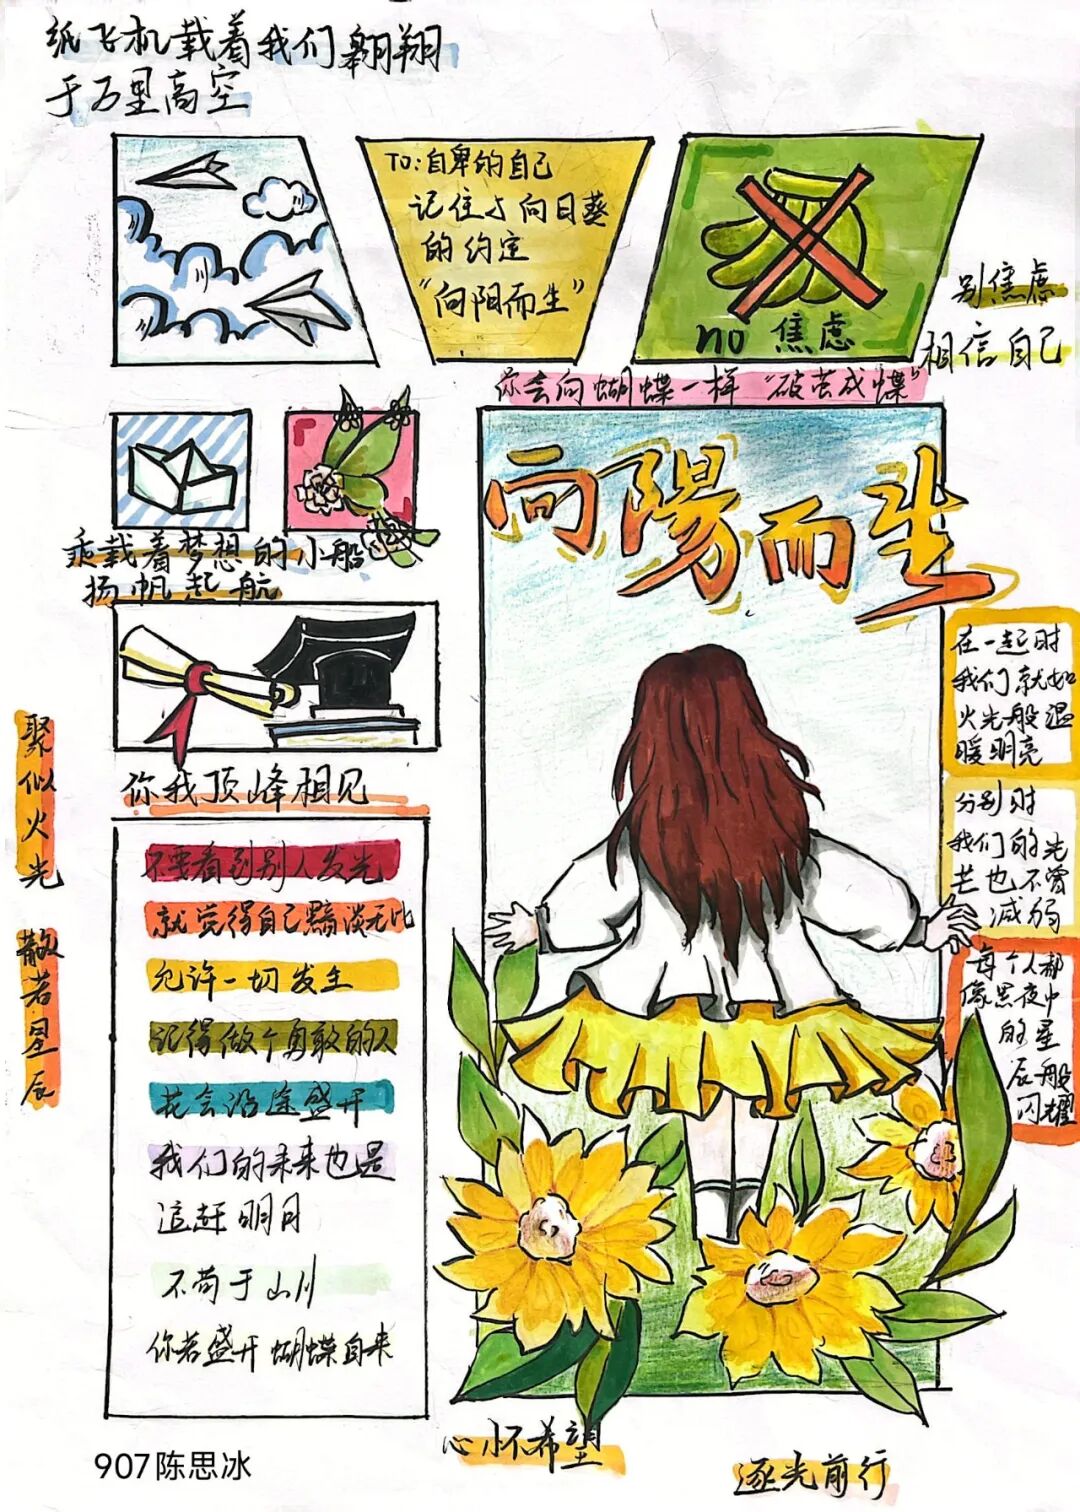 纸飞机载着我们翱翔
于万里高空
TO:自卑的自己
记住与向日葵
的约定
“向阳而生”
no 焦虑
别焦虑
相信自己
你会向蝴蝶一样“破茧成蝶”
向陽而生
乘载着梦想的小船
扬帆起航
你我顶峰相见
聚似火光 散若星辰
不要看到别人发光
就觉得自己黯淡无比
允许一切发生
记得做个勇敢的人
花会沿途盛开
我们的未来也是
追赶明月
不苟于山川
你若盛开蝴蝶自来
在一起时
我们就如
火光般温
暖明亮
分别时
我们的光
芒也不曾
减弱
每个人都
像黑夜中
的星
辰般
闪耀
心怀希望
逐光前行
907陈思冰